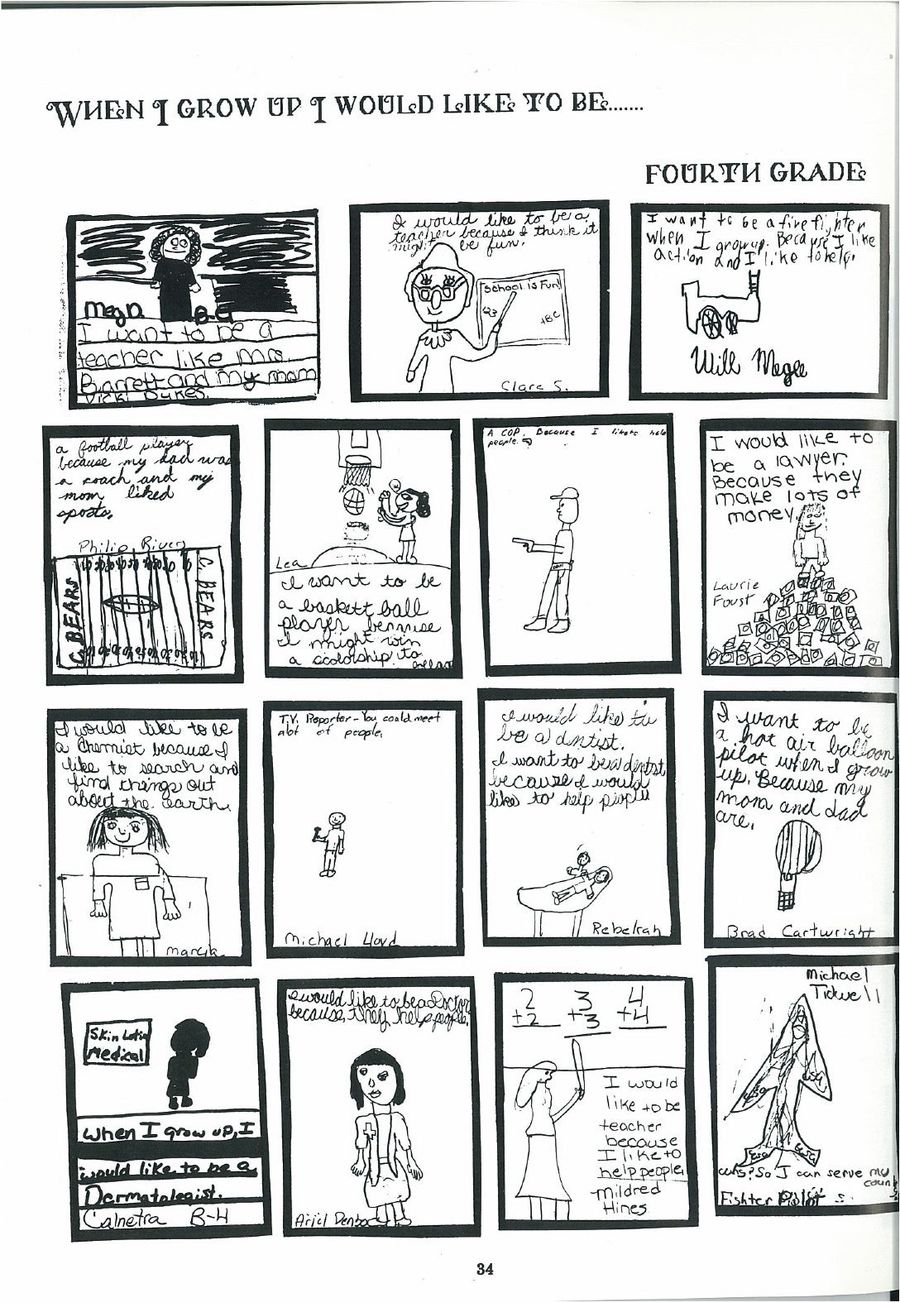 WHEN I GROW UP I WOULD LIKE TO BE.......
FOURTH GRADE
Megn B-G
I want to be a
teacher like Mrs.
Barrett and my mom
Vicki Dukes.
I would like to be a
teacher because I think it
might be fun.
School is Fun!
ABC
Clare S.
I want to be a firefighter
when I grow up. Because I like
action and I like to help.
Will Megee
a football player
because my dad was
a coach and my
mom liked
sports.
Philip River
C. BEARS
C. BEARS
Lea
I want to be
a baskett ball
player because
I might win
a scolorship to
A COP. Because I like to help
people.
I would like to
be a lawyer.
Because they
make lots of
money.
Laurie
Foust
I would like to be
a Chemist because I
like to search and
find things out
about the earth.
Marcia
T.V. Reporter - You could meet
alot of people.
Michael Lloyd
I would like to
be a dntist.
I want to be a dentist
because I would
like to help people
Rebekah
I want to be
a hot air balloon
pilot when I grow
up. Because my
mom and dad
are.
Brad Cartwright
Skin Lotin
Medical
When I grow up, I
would like to be a
Dermatologist.
Calnetra B-H
I would like to be a Doctor
because, they help people.
2 3 4
+2 +3 +4
I would
like to be
teacher
because
I like to
help people
Mildred
Hines
Michael
Tidwell
USA
USA
So I can serve my
coun
Fighter Pilot
34